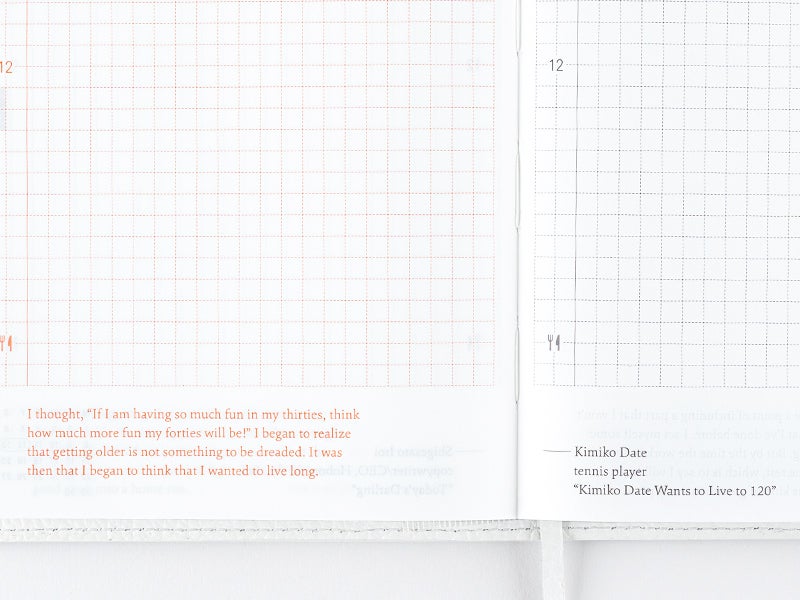 12
I thought, “If I am having so much fun in my thirties, think
how much more fun my forties will be!” I began to realize
that getting older is not something to be dreaded. It was
then that I began to think that I wanted to live long.
12
Kimiko Date
tennis player
“Kimiko Date Wants to Live to 120”